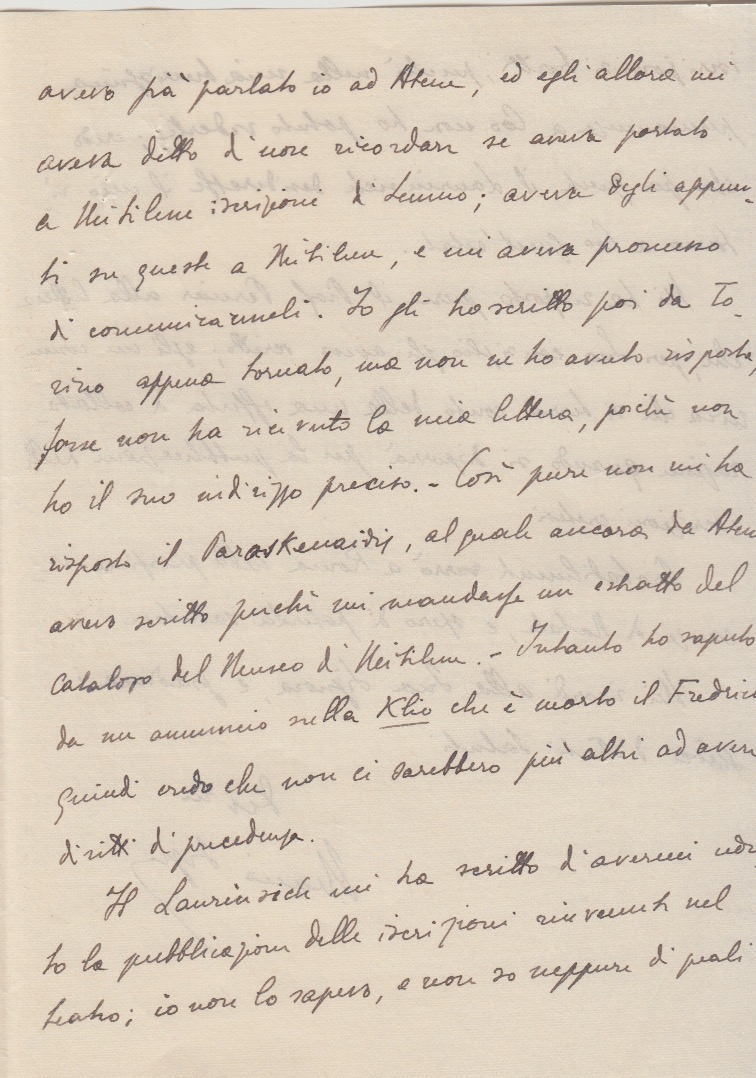 avevo già parlato io ad Atene, ed egli allora mi
aveva detto di non ricordare se aveva portato
a Mitilene iscrizioni di Lemno; aveva degli appun-
ti su queste a Mitilene, e mi aveva promesso
di comunicarmeli. Io gli ho scritto poi da To-
rino appena tornato, ma non ne ho avuto risposta,
forse non ha ricevuto la mia lettera, poichè non
ho il suo indirizzo preciso. - Così pure non mi ha
risposto il Paraskevaidis, al quale ancora da Atene
avevo scritto perchè mi mandasse un estratto del
catalogo del Museo di Mitilene. - Intanto ho saputo
da un annuncio nella Klio che è morto il Fredrich
quindi credo che non ci sarebbero più altri ad avere
diritti di precedenza.
Il Laurinsich mi ha scritto d'avermi
to la pubblicazione delle iscrizioni rinvenute nel
teatro; io non lo sapevo, e non so neppure di quali